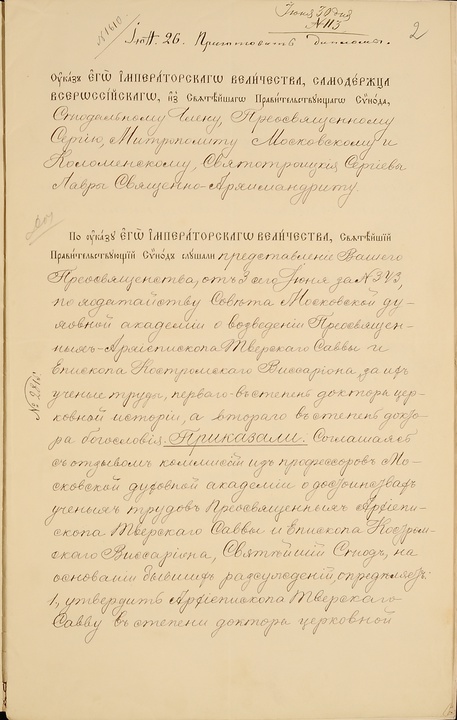 Іюня 30 дня
№ 113
2
№ 1610
Приготовить дипломы.
Оу҆ка́зъ Е҆ГѠ̀ І҆МПЕРА́ТОРСКАГѠ ВЕЛИ́ЧЕСТВА, САМОДЕ́РЖЦА
ВСЕРѠССІ́ЙСКАГѠ, и҆з̾ Свѧтѣ́йшагѡ Прави́тельствꙋющагѡ Сѷно́да,
Сѵнодальному Члену, Преосвященному
Сергію, Митрополиту Московскому и
Коломенскому, Святотроицкія Сергіевы
Лавры Священно-Архимандриту.
По оу҆ка́зꙋ Е҆ГѠ̀ І҆МПЕРА́ТОРСКАГѠ ВЕЛИ́ЧЕСТВА, Свѧтѣ́йшій
Прави́тельствꙋющій Сѷно́дъ слꙋ́шали представленіе Вашего
Преосвященства, отъ 3 сего Іюня за № 343,
по ходатайству Совѣта Московской ду-
ховной академіи о возведеніи Преосвящен-
ныхъ-Архіепископа Тверскаго Саввы и
Епископа Костромскаго Виссаріона, за ихъ
ученые труды, перваго-въ степень доктора цер-
ковной исторіи, а втораго въ степень докто-
ра богословія. Приказали. Соглашаясь
съ отзывомъ коммисій изъ профессоровъ Мо-
сковской духовной академіи о достоинствахъ
ученыхъ трудовъ Преосвященныхъ Архіепи-
скопа Тверскаго Саввы и Епископа Костром-
скаго Виссаріона, Святѣйшій Сѵнодъ, на
основаніи бывшихъ разсужденій, опредѣляетъ:
1, утвердить Архіепископа Тверскаго
Савву въ степени доктора церковной